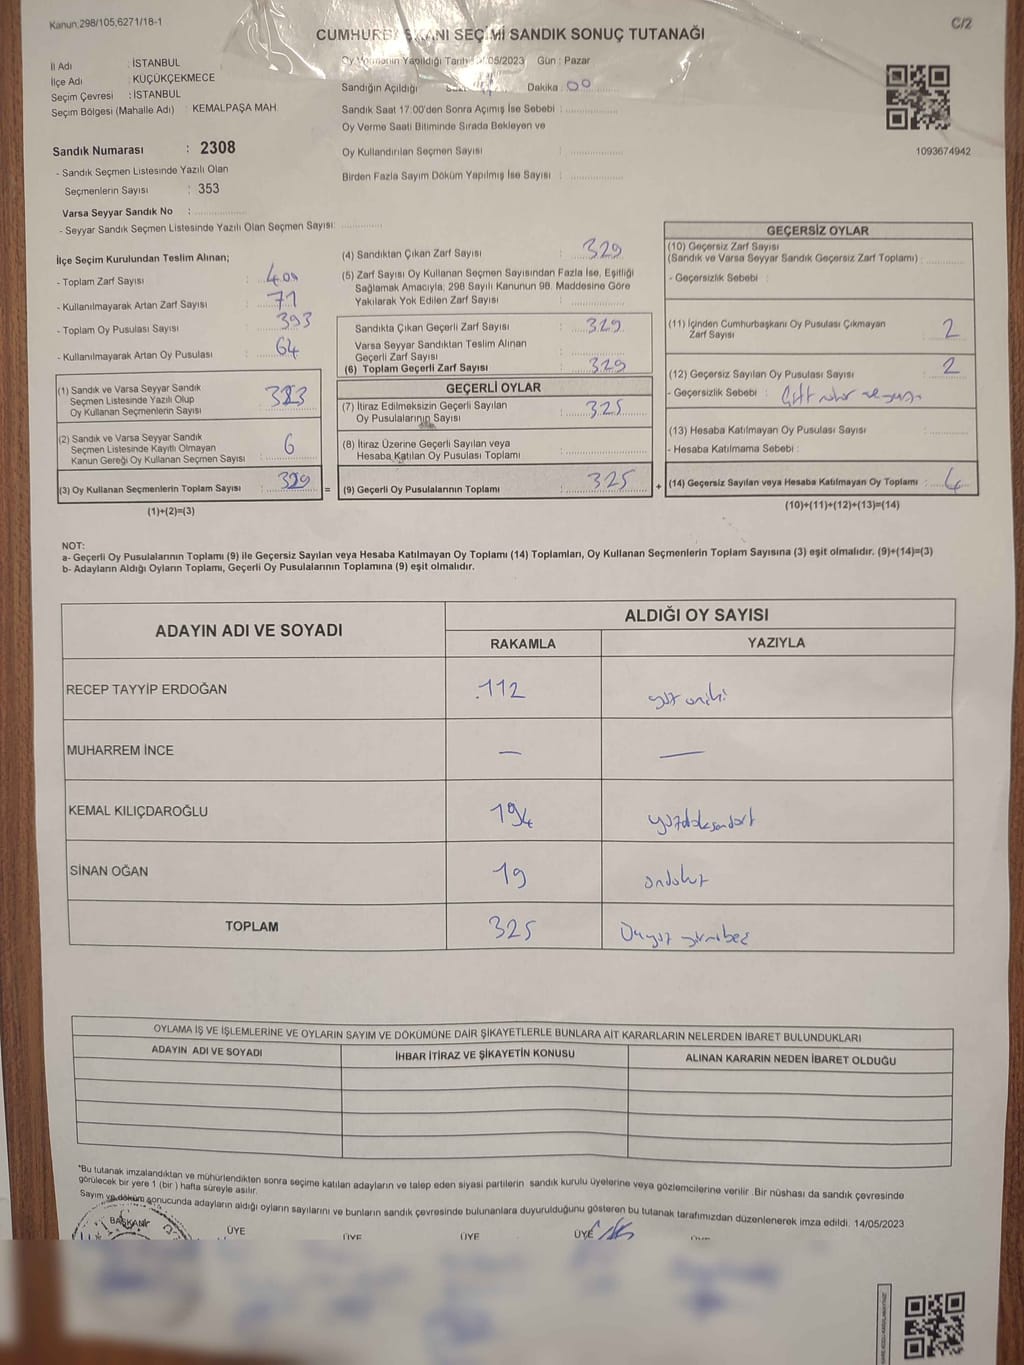 Kanun:298/105,6271/18-1
C/2
CUMHURBAŞKANI SEÇİMİ SANDIK SONUÇ TUTANAĞI
İl Adı : İSTANBUL
İlçe Adı : KÜÇÜKÇEKMECE
Seçim Çevresi : İSTANBUL
Seçim Bölgesi (Mahalle Adı) : KEMALPAŞA MAH
Oy Vermenin Yapıldığı Tarih /05/2023 Gün : Pazar
Sandığın Açıldığı Dakika : 00
Sandık Saat 17:00'den Sonra Açımış İse Sebebi :
Oy Verme Saati Bitiminde Sırada Bekleyen ve
Oy Kullandırılan Seçmen Sayısı :
Birden Fazla Sayım Döküm Yapılmış İse Sayısı :
1093674942
Sandık Numarası : 2308
- Sandık Seçmen Listesinde Yazılı Olan
Seçmenlerin Sayısı : 353
Varsa Seyyar Sandık No :
- Seyyar Sandık Seçmen Listesinde Yazılı Olan Seçmen Sayısı:
İlçe Seçim Kurulundan Teslim Alınan;
- Toplam Zarf Sayısı : 400
- Kullanılmayarak Artan Zarf Sayısı : 71
- Toplam Oy Pusulası Sayısı : 393
- Kullanılmayarak Artan Oy Pusulası : 64
(1) Sandık ve Varsa Seyyar Sandık
Seçmen Listesinde Yazılı Olup
Oy Kullanan Seçmenlerin Sayısı : 323
(2) Sandık ve Varsa Seyyar Sandık
Seçmen Listesinde Kayıtlı Olmayan
Kanun Gereği Oy Kullanan Seçmen Sayısı : 6
(3) Oy Kullanan Seçmenlerin Toplam Sayısı : 329 =
(1)+(2)=(3)
(4) Sandıktan Çıkan Zarf Sayısı : 329
(5) Zarf Sayısı Oy Kullanan Seçmen Sayısından Fazla İse, Eşitliği
Sağlamak Amacıyla; 298 Sayılı Kanunun 98. Maddesine Göre
Yakılarak Yok Edilen Zarf Sayısı :
Sandıkta Çıkan Geçerli Zarf Sayısı : 329
Varsa Seyyar Sandıktan Teslim Alınan
Geçerli Zarf Sayısı :
(6) Toplam Geçerli Zarf Sayısı : 329
GEÇERLİ OYLAR
(7) İtiraz Edilmeksizin Geçerli Sayılan
Oy Pusulalarının Sayısı : 325
(8) İtiraz Üzerine Geçerli Sayılan veya
Hesaba Katılan Oy Pusulası Toplamı :
(9) Geçerli Oy Pusulalarının Toplamı : 325 +
GEÇERSİZ OYLAR
(10) Geçersiz Zarf Sayısı
(Sandık ve Varsa Seyyar Sandık Geçersiz Zarf Toplamı) :
- Geçersizlik Sebebi :
(11) İçinden Cumhurbaşkanı Oy Pusulası Çıkmayan
Zarf Sayısı : 2
(12) Geçersiz Sayılan Oy Pusulası Sayısı : 2
- Geçersizlik Sebebi : Çift
(13) Hesaba Katılmayan Oy Pusulası Sayısı :
- Hesaba Katılmama Sebebi :
(14) Geçersiz Sayılan veya Hesaba Katılmayan Oy Toplamı : 4
(10)+(11)+(12)+(13)=(14)
NOT:
a- Geçerli Oy Pusulalarının Toplamı (9) ile Geçersiz Sayılan veya Hesaba Katılmayan Oy Toplamı (14) Toplamları, Oy Kullanan Seçmenlerin Toplam Sayısına (3) eşit olmalıdır. (9)+(14)=(3)
b- Adayların Aldığı Oyların Toplamı, Geçerli Oy Pusulalarının Toplamına (9) eşit olmalıdır.
ADAYIN ADI VE SOYADI
ALDIĞI OY SAYISI
RAKAMLA YAZIYLA
RECEP TAYYİP ERDOĞAN 112 yüz oniki
MUHARREM İNCE — —
KEMAL KILIÇDAROĞLU 194 yüzdoksandört
SİNAN OĞAN 19 ondokuz
TOPLAM 325 Üçyüz yirmibeş
OYLAMA İŞ VE İŞLEMLERİNE VE OYLARIN SAYIM VE DÖKÜMÜNE DAİR ŞİKAYETLERLE BUNLARA AİT KARARLARIN NELERDEN İBARET BULUNDUKLARI
ADAYIN ADI VE SOYADI İHBAR İTİRAZ VE ŞİKAYETİN KONUSU ALINAN KARARIN NEDEN İBARET OLDUĞU
*Bu tutanak imzalandıktan ve mühürlendikten sonra seçime katılan adayların ve talep eden siyasi partilerin sandık kurulu üyelerine veya gözlemcilerine verilir .Bir nüshası da sandık çevresinde
görülecek bir yere 1 (bir ) hafta süreyle asılır.
Sayım ve döküm sonucunda adayların aldığı oyların sayılarını ve bunların sandık çevresinde bulunanlara duyurulduğunu gösteren bu tutanak tarafımızdan düzenlenerek imza edildi. 14/05/2023
BAŞKAN ÜYE ÜYE ÜYE ÜYE